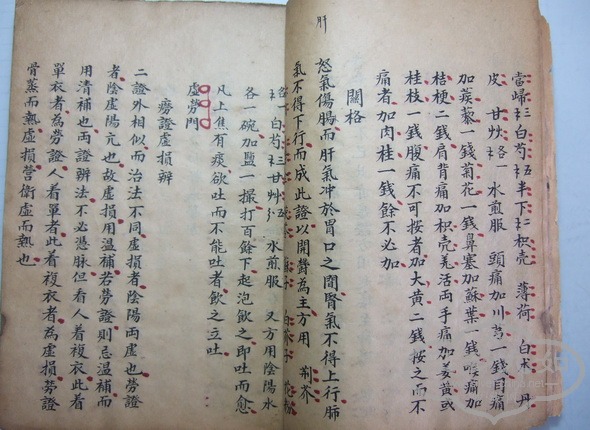 肝
當歸 白芍 半下 枳壳 薄荷 白术 丹
皮 甘艸 各一 水煎服 頭痛加川芎一錢目痛
加蒺藜一錢菊花一錢鼻塞加蘇葉一錢喉痛加
桔梗二錢肩背痛加枳壳羌活両手痛加姜黃或
桂枝一錢腹痛不可按者加大黃二錢按之而不
痛者加肉桂一錢餘不必加
關格
怒氣傷而肝氣冲於胃口之間腎氣不得上行肺
氣不得下行而成此證以開鬱為主方用 荆芥
白芍 甘艸 水煎服 又方用陰陽水
各一碗加盐一撮打百餘下起泡飲之即吐而愈
凡上焦有痰欲吐而不能吐者飲之立吐
虛勞門
癆證虛損辨
二證外相似而治法不同虛損者陰陽両虛也勞證
者陰虛陽亢也故虛損用溫補若勞證則忌溫補而
用清補也両證辦法不必憑脉但看人着複衣此着
單衣者為勞證人着單者此着複衣者為虛損勞證
骨蒸而熱虛損營衛虛而熱也